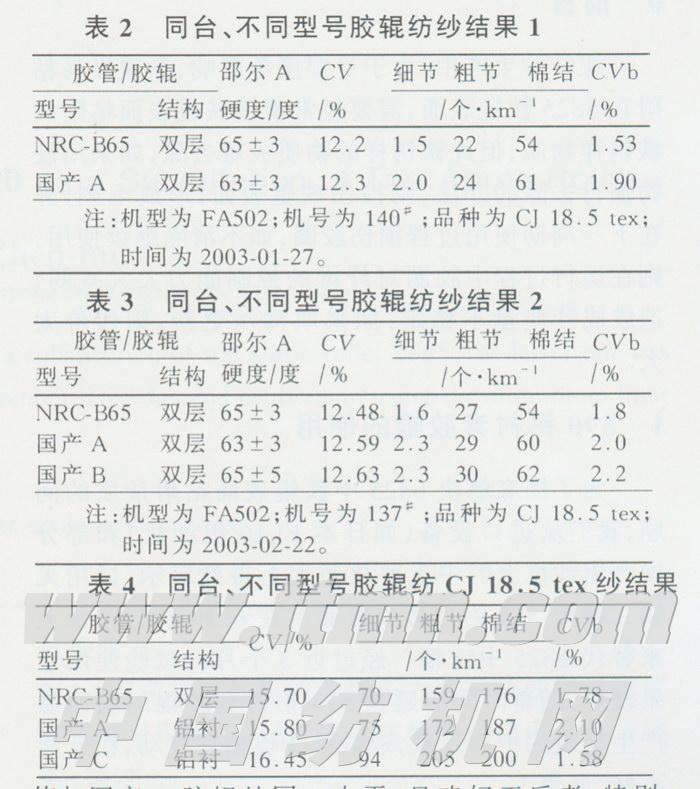 表 2 同台、不同型号胶辊纺纱结果 1
胶管/胶辊 邵尔 A CV 细节 粗节 棉结 CVb
型号 结构 硬度/度 /% /个·km⁻¹ /%
NRC-B65 双层 65±3 12.2 1.5 22 54 1.53
国产 A 双层 63±3 12.3 2.0 24 61 1.90
注:机型为 FA502;机号为 140#;品种为 CJ 18.5 tex;
时间为 2003-01-27。
表 3 同台、不同型号胶辊纺纱结果 2
胶管/胶辊 邵尔 A CV 细节 粗节 棉结 CVb
型号 结构 硬度/度 /% /个·km⁻¹ /%
NRC-B65 双层 65±3 12.48 1.6 27 54 1.8
国产 A 双层 63±3 12.59 2.3 29 60 2.0
国产 B 双层 65±5 12.63 2.3 30 62 2.2
注:机型为 FA502;机号为 137#;品种为 CJ 18.5 tex;
时间为 2003-02-22。
表 4 同台、不同型号胶辊纺 CJ 18.5 tex 纱结果
www.ttmn.com
胶管/胶辊 CV/% 细节 粗节 棉结 CVb
型号 结构 /个·km⁻¹ /%
NRC-B65 双层 15.70 70 159 176 1.78
国产 A 铝衬 15.80 75 172 187 2.10
国产 C 铝衬 16.45 94 205 200 1.58
中国纺机网